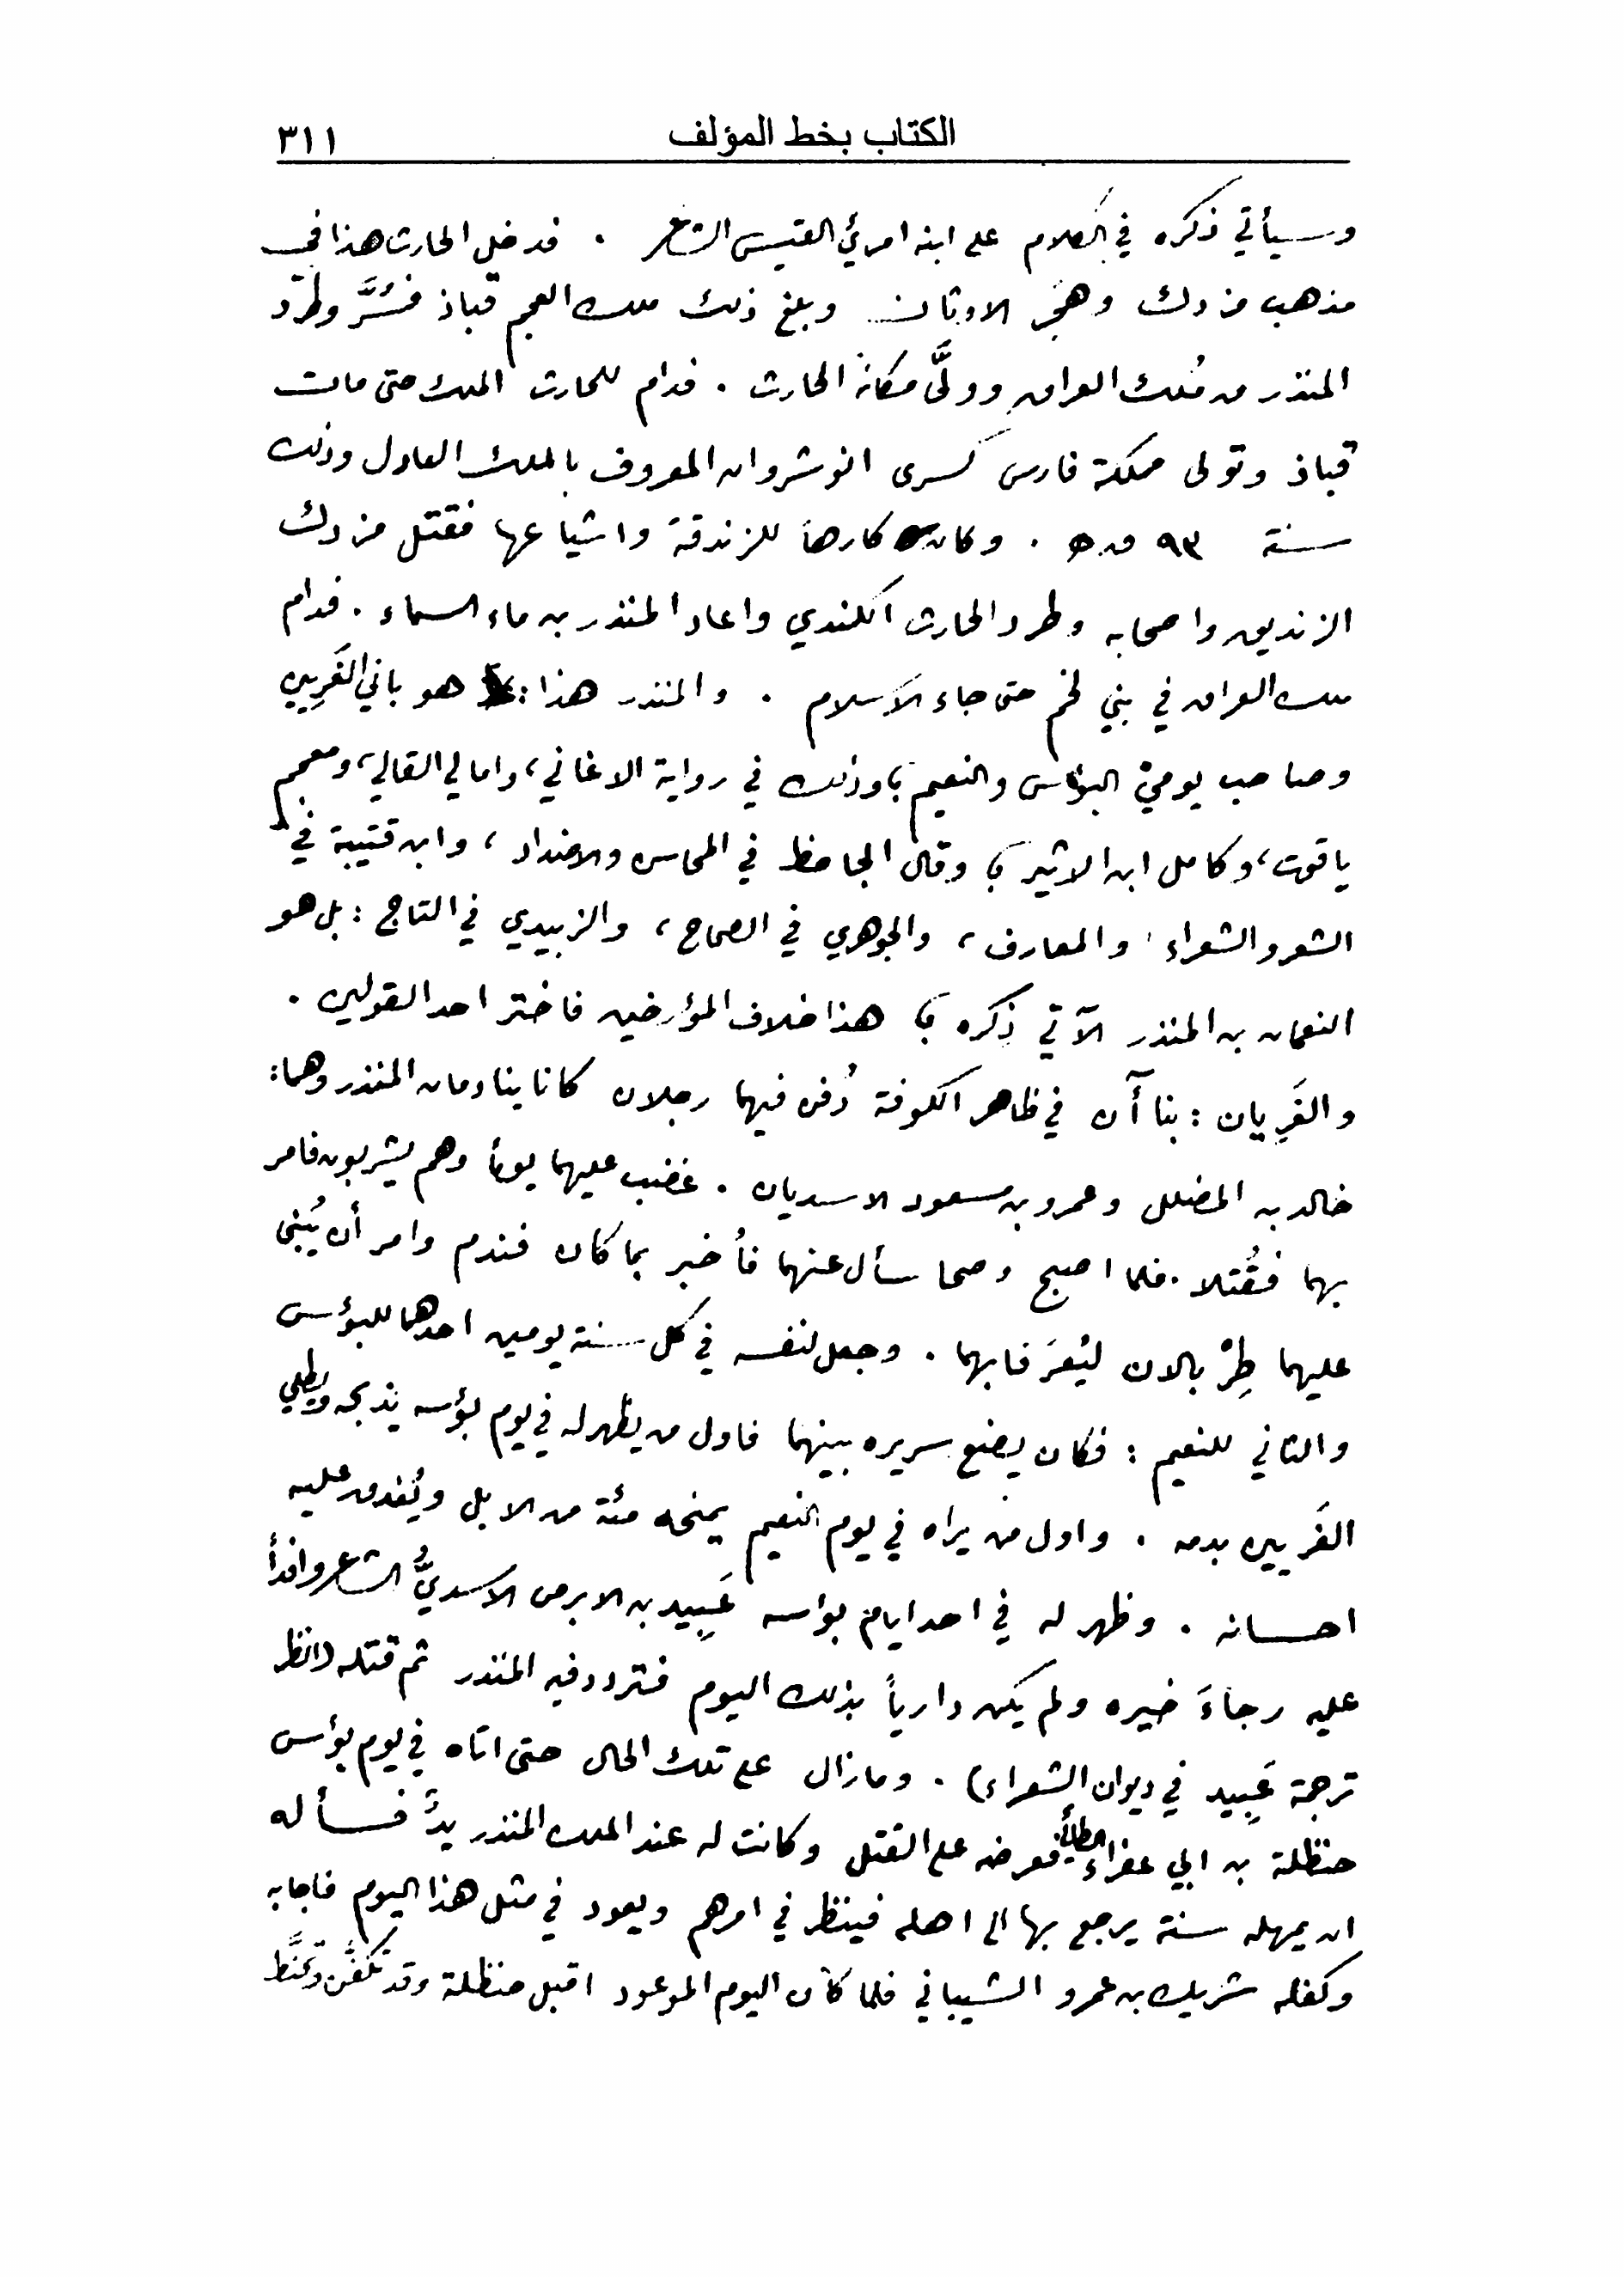 الكتاب بخط المؤلف ٣١١
وسيأتي ذكره في الكلام على ابنه امرئ القيس الشاعر . فدخل الحارث هذا في
مذهب مزدك وهَجَر الاوثان وبلغ ذلك ملك العجم قباذ فسُرَّ وطرد
المنذر من مُلك العراق وولَّى مكانه الحارث . فدام للحارث الملك حتى مات
قباذ وتولى مملكة فارس كسرى انوشروان المعروف بالملك العادل وذلك
سنة ٩٣ ق ه . وكان كارهاً للزندقة واشياعها فقتل مزدك
الزنديق واصحابه وطرد الحارث الكندي واعاد المنذر بن ماء السماء . فدام
ملك العراق في بني لخم حتى جاء الاسلام . والمنذر هذا : هو باني الغَرِيين
وصاحب يوميْ البؤس والنعيم ؛ وذلك في رواية الاغاني ، وامالي القالي ، ومعجم
ياقوت ، وكامل ابن الاثير ؛ وقال الجاحظ في المحاسن والاضداد ، وابن قتيبة في
الشعر والشعراء ، والمعارف ، والجوهري في الصحاح ، والزبيدي في التاج : بل هو
النعمان بن المنذر الآتي ذكره ؛ هذا خلاف المؤرخين فاختر احد القولين .
والغَرِيان : بناآن في ظاهر الكوفة دُفن فيهما رجلان كانا ينادمان المنذر وهما :
خالد بن المضلل وعمرو بن مسعود الاسديان . غضب عليهما يوماً وهم يشربون فامر
بهما فقُتلا . فلما اصبح وصحا سأل عنهما فأُخبر بما كان فندم وامر أن يُبنى
عليهما طِرْبالان ليُعرَفا بهما . وجعل لنفسه في كل سنة يومين احدهما للبؤس
والثاني للنعيم : فكان يضع سريره بينهما فاول من يظهر له في يوم بؤسه يذبحه ويطلي
الغَريين بدمه . واول من يراه في يوم النعيم يمنحه مئة من الابل ويُغدق عليه
احسانه . وظهر له في احد ايام بؤسه عَبِيد بن الابرص الاسديُّ الشاعر وافداً
عليه رجاءَ خيره ولم يكن دارياً بذلك اليوم فتردد فيه المنذر ثم قتله (انظر
ترجمة عَبِيد في ديوان الشعراء) . وما زال على تلك الحال حتى اتاه في يوم بؤس
حنظلة بن ابي عفراء الطائي فعرضه على القتل وكانت له عند الملك المنذر يدٌ فسأله
ان يمهله سنة يرجع بها الى اهله فينظر في امرهم ويعود في مثل هذا اليوم فاجابه
وكفله شريك بن عمرو الشيباني فلما كان اليوم الموعود اقبل حنظلة وقد تكفَّن وتحنَّط